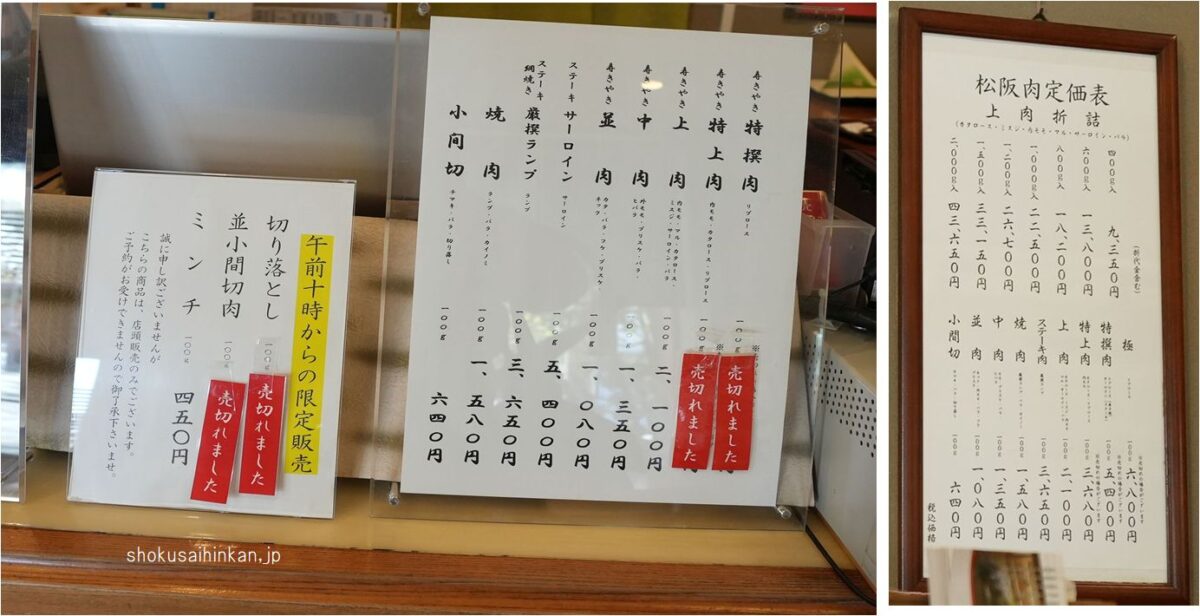 午前十時からの限定販売
切り落とし 一〇〇g 売切れました
並小間切肉 一〇〇g 売切れました
ミンチ 一〇〇g 四五〇円
誠に申し訳ございませんが
こちらの商品は、店頭販売のみでございます。
ご予約がお受けできませんので御了承下さいませ。
寿きやき 特撰肉 リブロース 一〇〇g 売切れました
寿きやき 特上肉 内モモ・カタロース・リブロース 一〇〇g 売切れました
寿きやき 上肉 内モモ・マル・カタロース・ミスジ・サーロイン・バラ 一〇〇g 二、一〇〇円
寿きやき 中肉 外モモ・ブリスケ・バラ・ヒバラ 一〇〇g 一、三五〇円
寿きやき 並肉 カタ・バラ・フケ・ブリスケ・ネック 一〇〇g 一、〇八〇円
ステーキ サーロイン サーロイン 一〇〇g 五、四〇〇円
ステーキ網焼き 厳撰ランプ ランプ 一〇〇g 三、六五〇円
焼肉 ランプ・バラ・カイノミ 一〇〇g 一、五八〇円
小間切 チマキ・バラ・切り落し 一〇〇g 六四〇円
松阪肉定価表
上肉折詰
(カタロース・ミスジ・内モモ・マル・サーロイン・バラ)
(折代金含む)
四〇〇g入 九、三五〇円
六〇〇g入 一三、八〇〇円
八〇〇g入 一八、二〇〇円
一、〇〇〇g入 二二、五〇〇円
一、二〇〇g入 二六、七〇〇円
一、五〇〇g入 三三、一五〇円
二、〇〇〇g入 四三、六五〇円
極 一〇〇g 六、八〇〇円 ※売切れの場合がございます
特撰肉 一〇〇g 五、四〇〇円 ※売切れの場合がございます
特上肉 一〇〇g 三、六八〇円 ※売切れの場合がございます
上肉 一〇〇g 二、一〇〇円
ステーキ肉 一〇〇g 三、六五〇円
焼肉 一〇〇g 一、五八〇円
中肉 一〇〇g 一、三五〇円
並肉 一〇〇g 一、〇八〇円
小間切 一〇〇g 六四〇円
税込価格
shokusaihinkan.jp